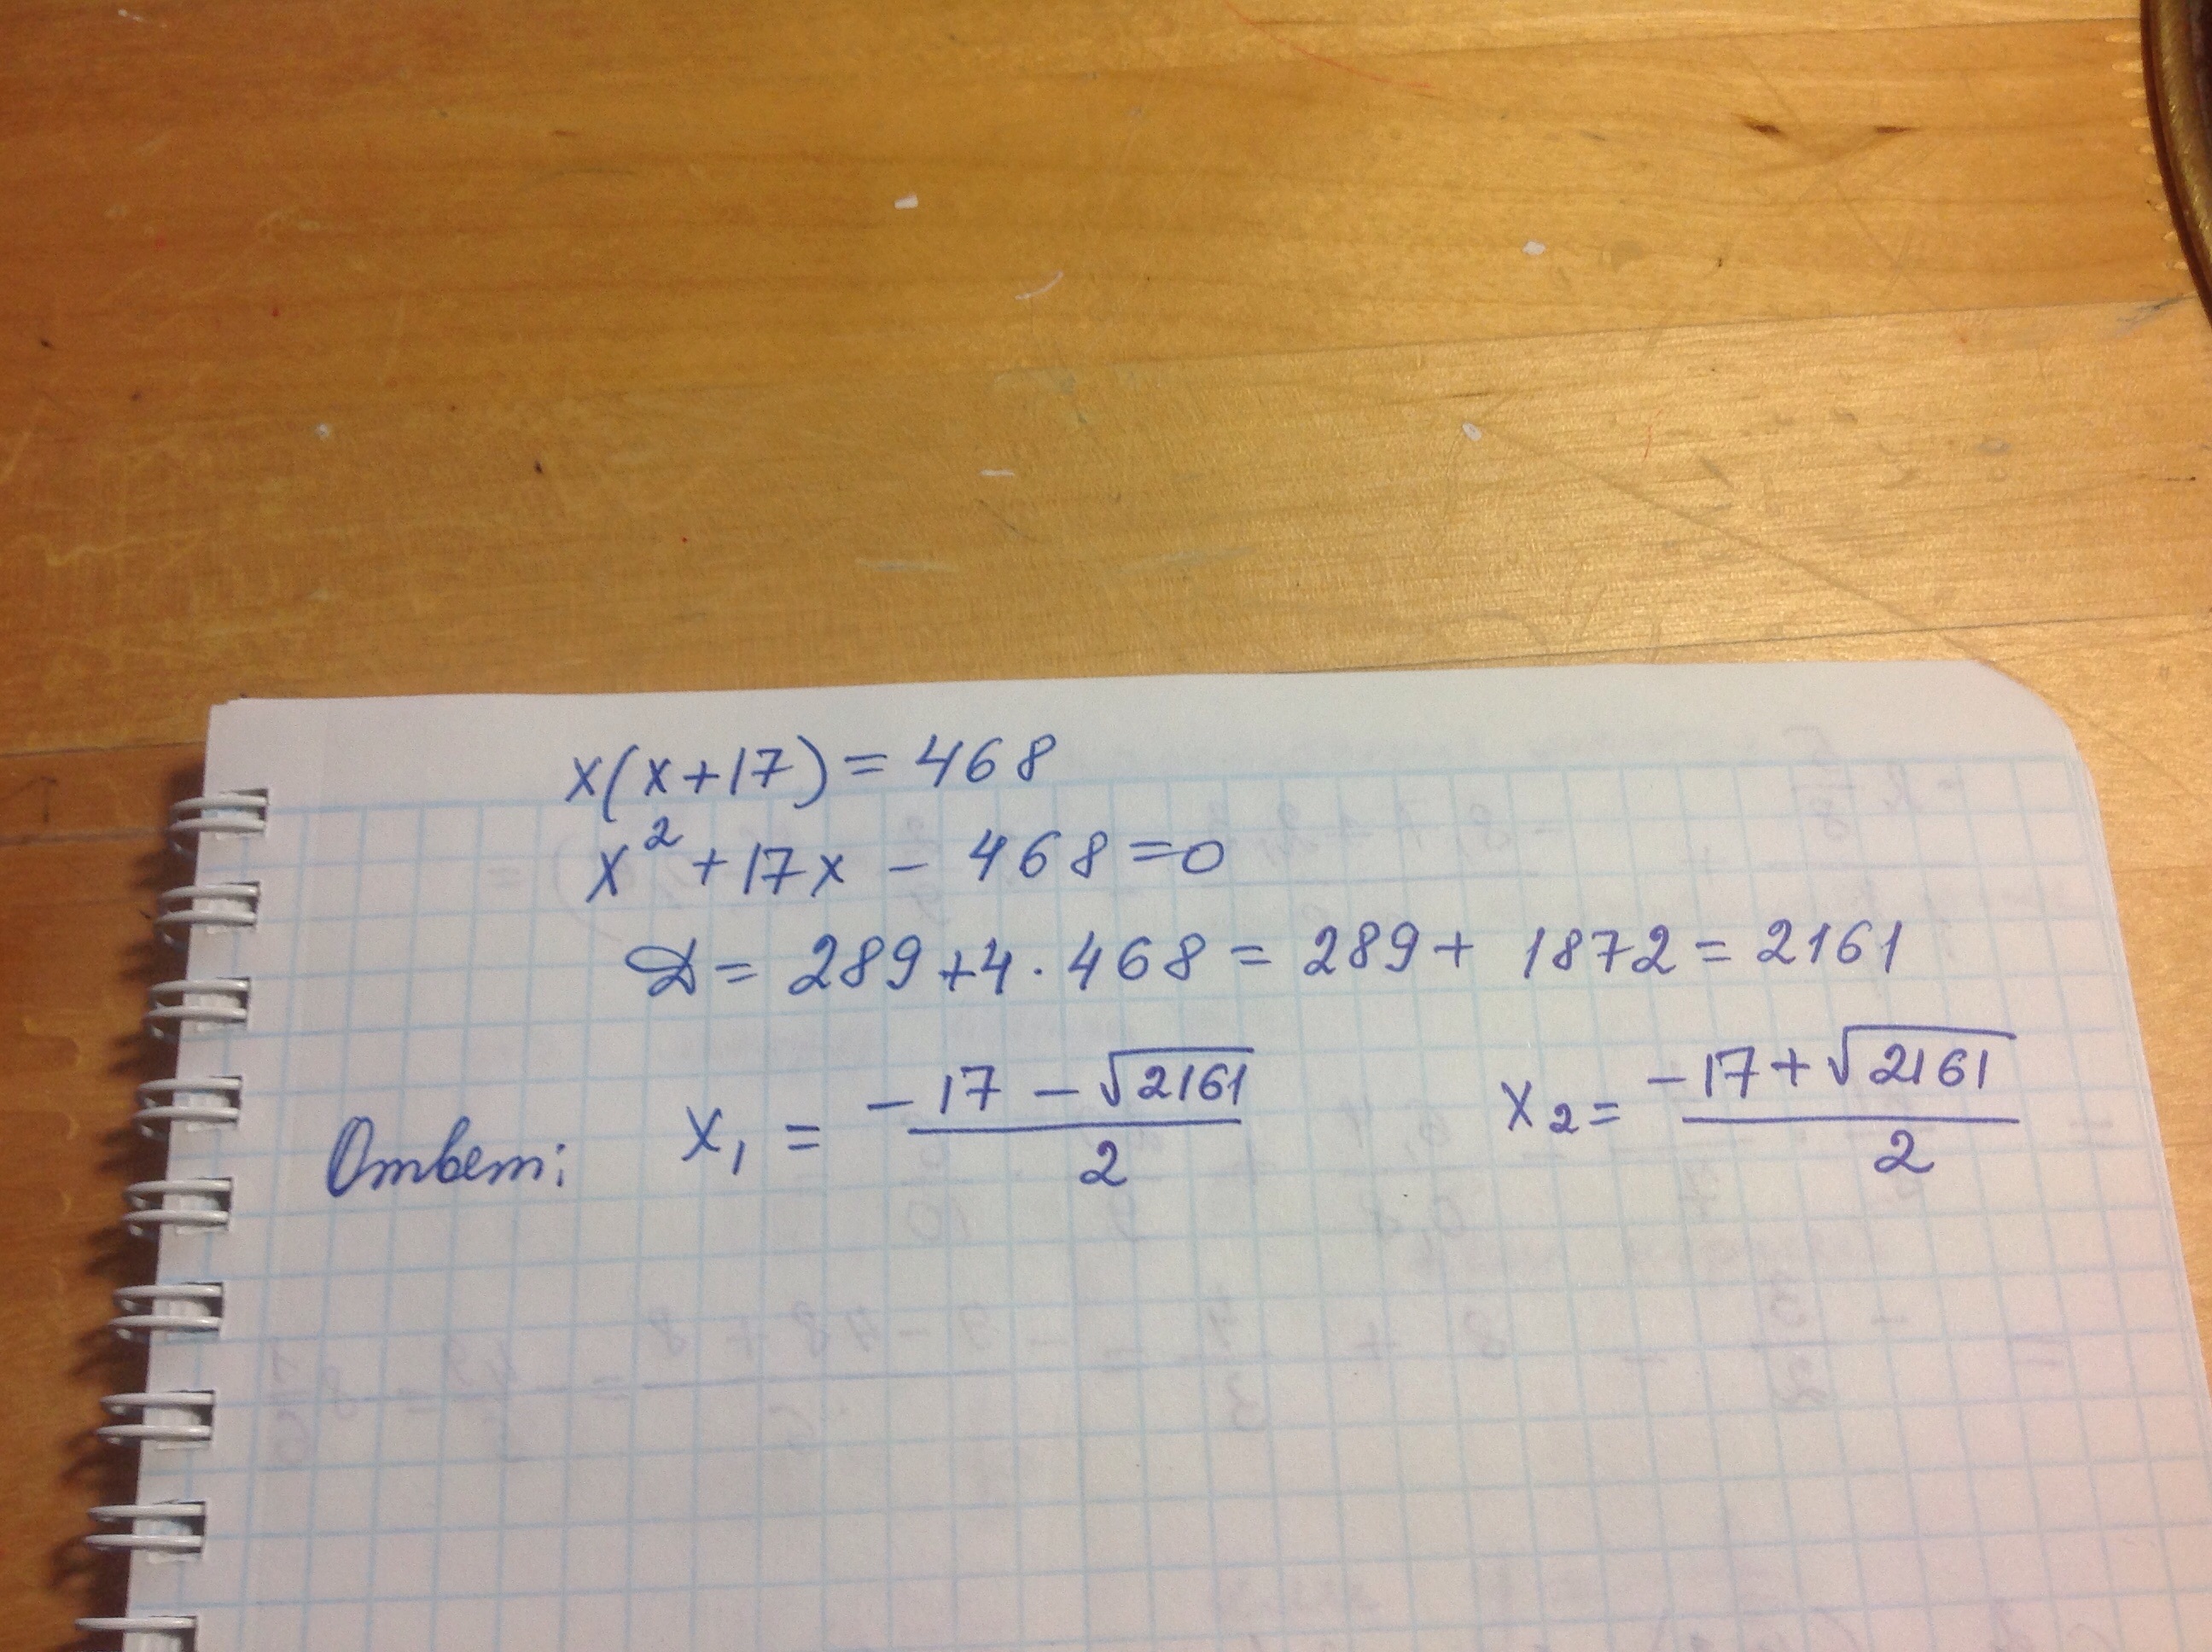 x(x+17)=468
x²+17x - 468=0
D= 289+4·468= 289+ 1872=2161
Ответ: x₁ = (-17-√2161)/2 x₂= (-17+√2161)/2